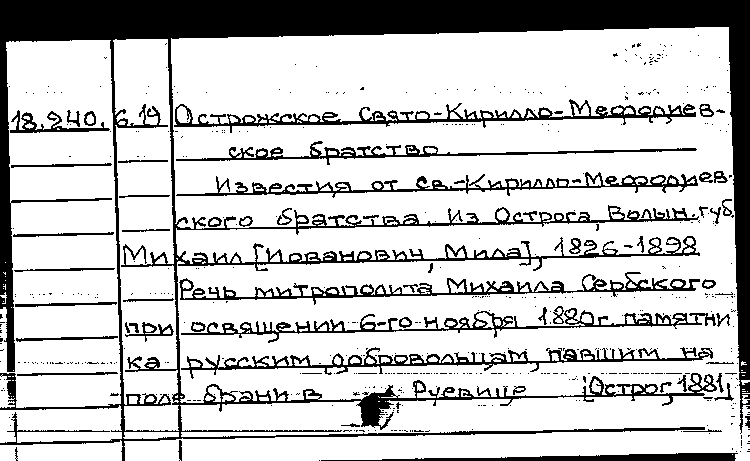 18.240. 6.19 Острожское Свято-Кирилло-Мефодиев-
ское братство.
Известия от св.-Кирилло-Мефодиев-
ского братства. Из Острога, Волын. губ.
Михаил [Иованович, Мила], 1826-1898
Речь митрополита Михаила Сербского
при освящении 6-го ноября 1880г. памятни
ка русским добровольцам, павшим на
поле брани в Руевице [Острог, 1881]